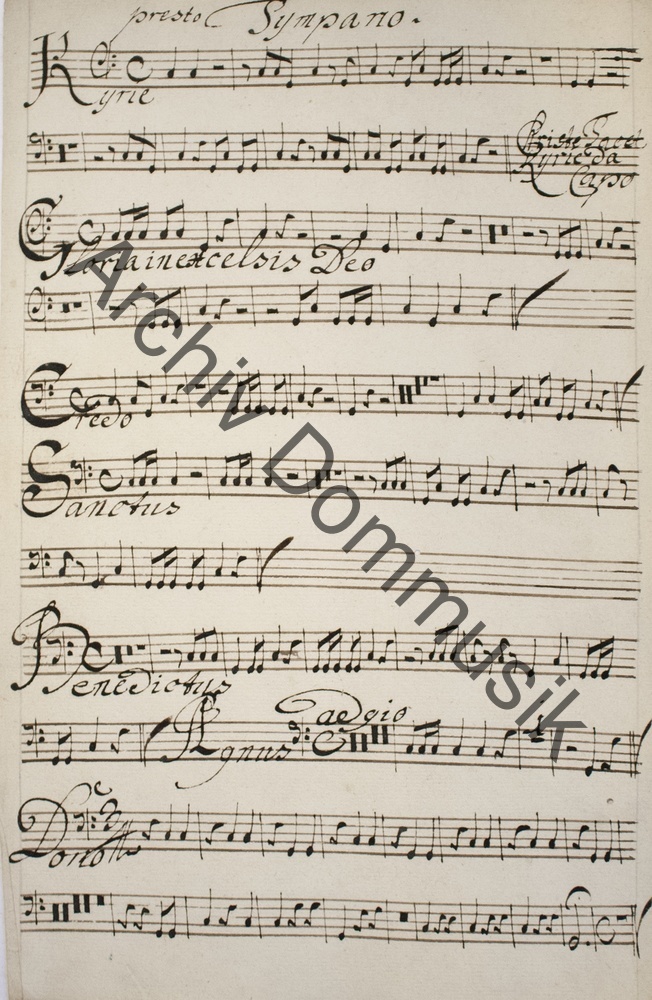 presto Tympano.
Kyrie
Christe Tacet
Kyrie da
Capo
Gloria in excelsis Deo
Credo
Sanctus
Benedictus
Agnus adagio
Dona
Archiv Dommusik